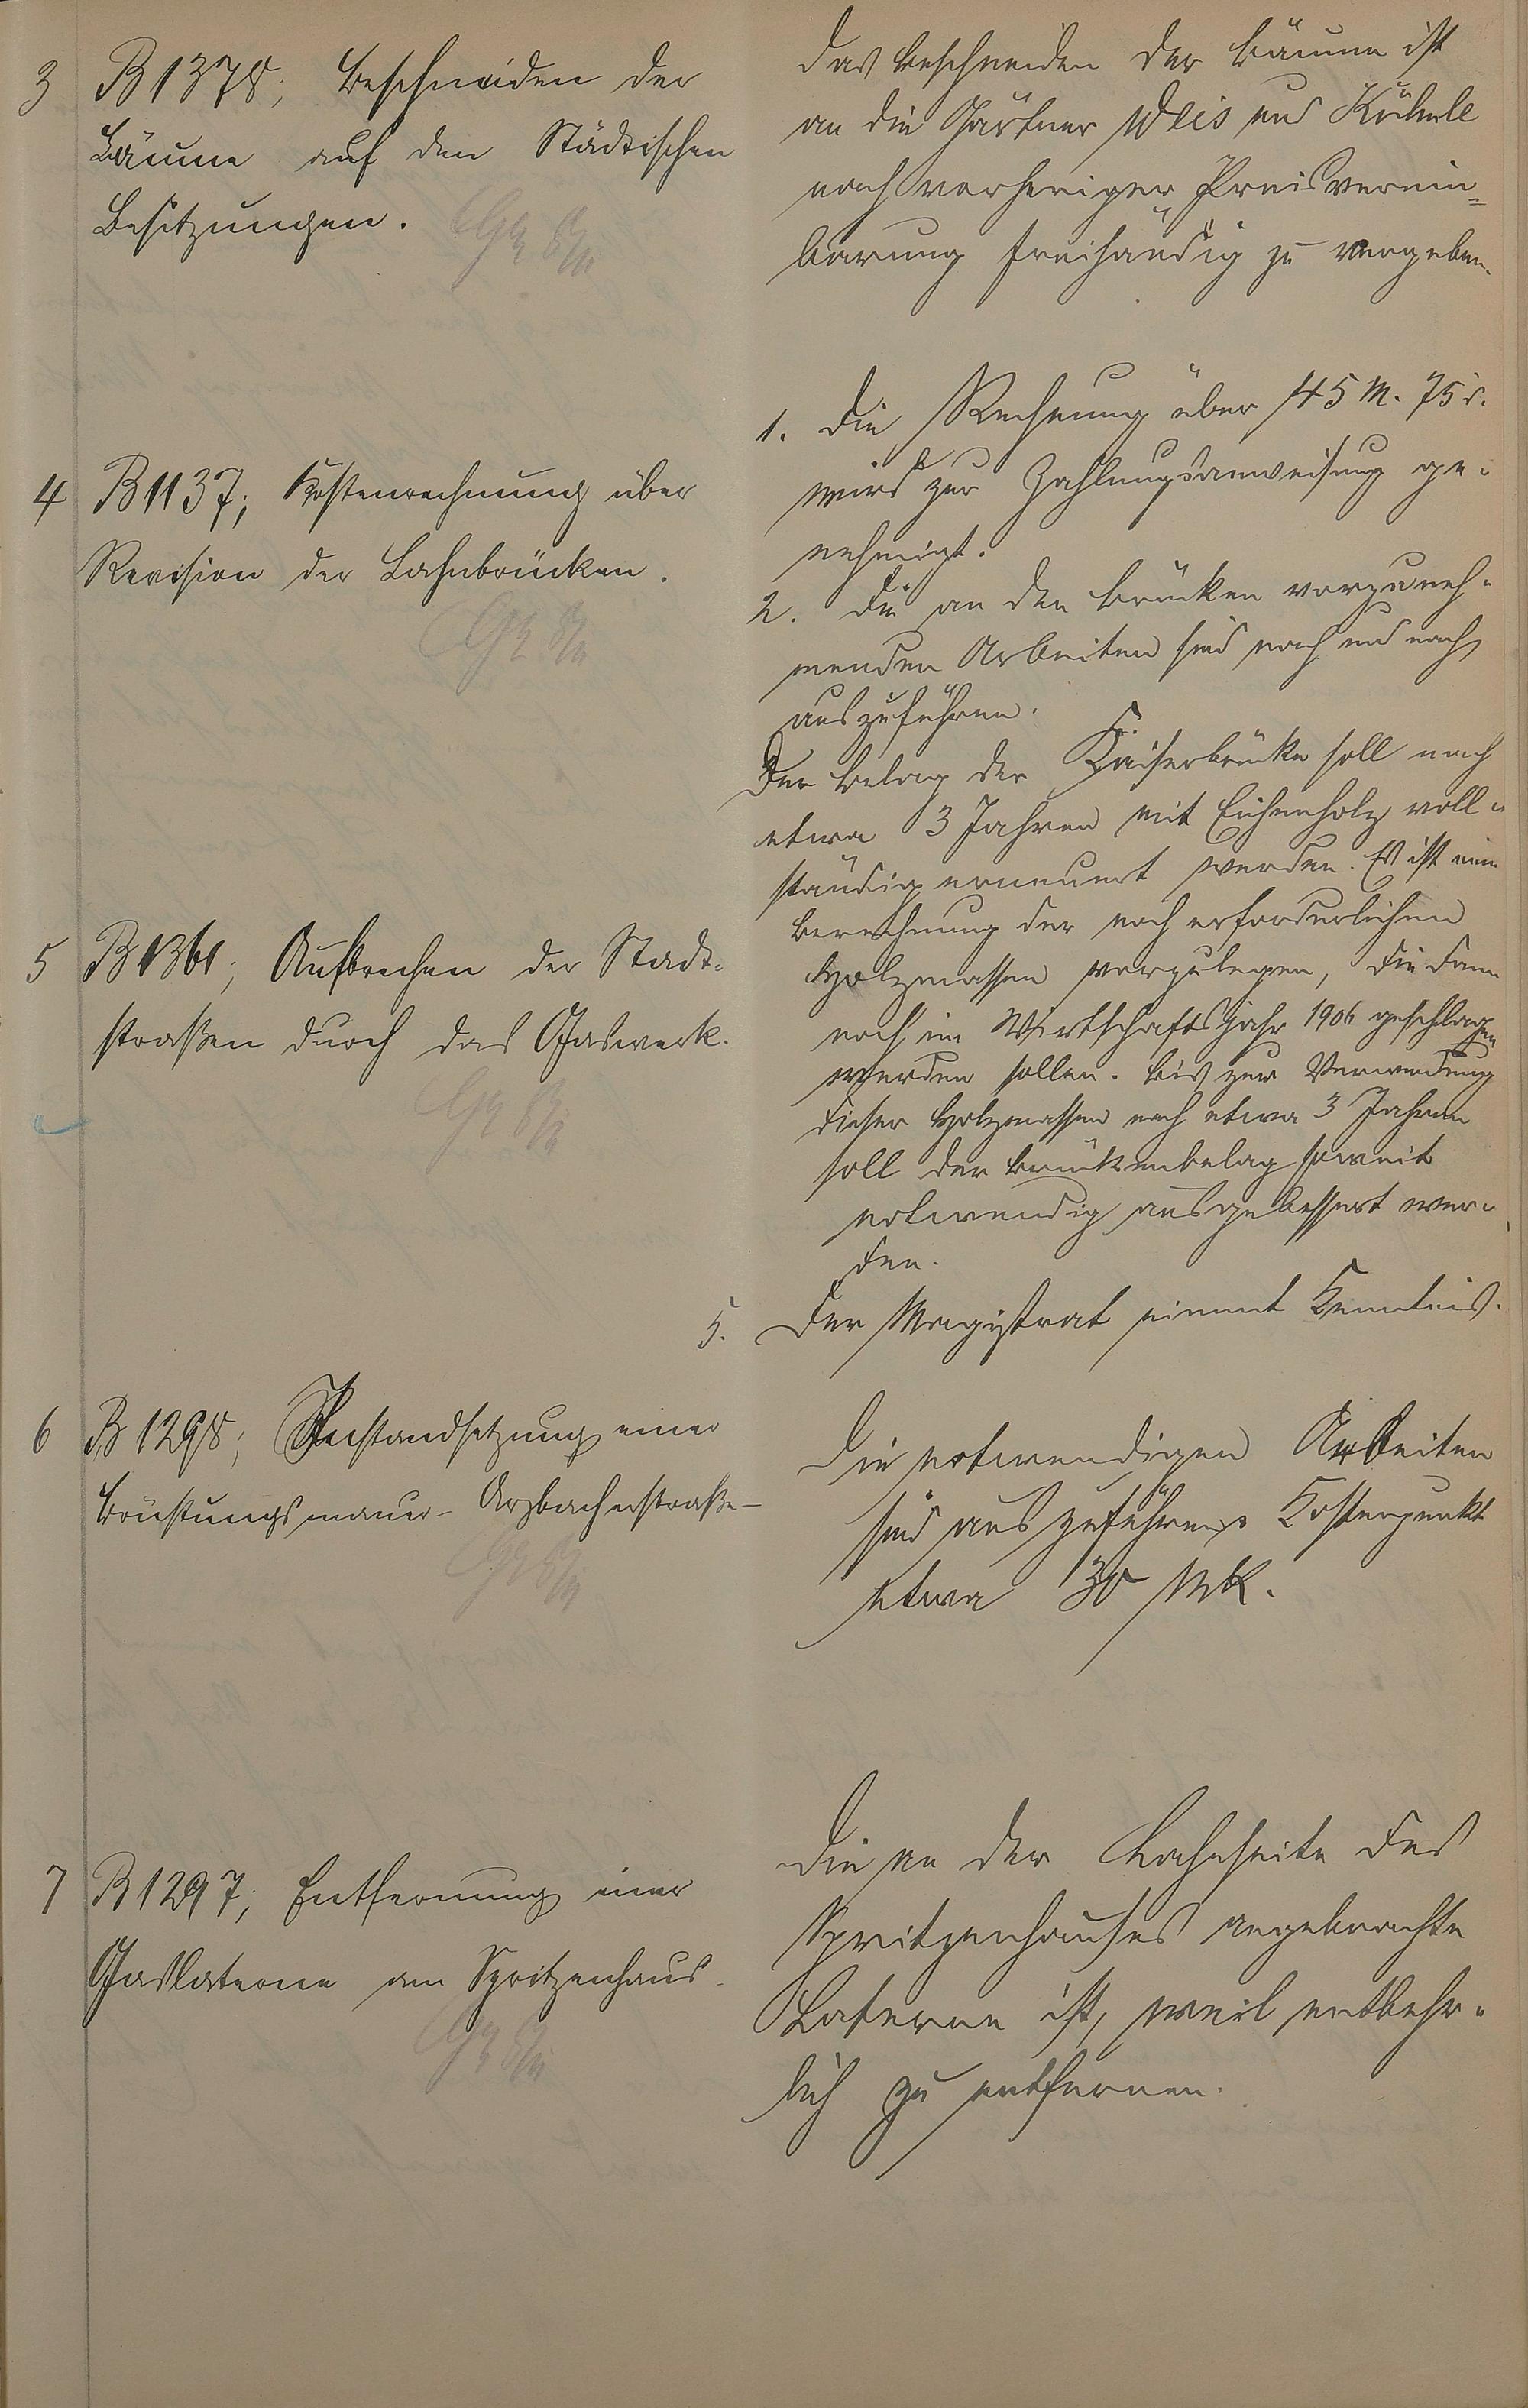 3 B 1378; Beschneiden der
Bäume auf den Städtischen
Besitzungen.
Das Beschneiden der Bäume ist
an die Gärtner Weis und
nach vorheriger Preisverein=
barung freihändig zu vergeben.
4 B 1137; Kostenrechnung über
Revision der Lahnbrücken.
1. Die Rechnung über 45 M. 75 d.
wird zur Zahlungsanweisung ge-
nehmigt.
2. Die an den Brücken vorzuneh-
menden Arbeiten sind nach und nach
auszuführen.
Der Belag der Kaiserbrücke soll nach
etwa 3 Jahren mit Eichenholz voll-
ständig erneuert werden. Es ist eine
Berechnung der noch erforderlichen
Holzmassen vorzulegen, die dann
noch im Wirtschaftsjahr 1906 geschlagen
werden sollen. Bis zur Verwendung
dieser Holzmassen nach etwa 3 Jahren
soll der Brückenbelag soweit
notwendig ausgebessert wer-
den.
5 B 1361; Aufbrechen der Stadt-
straßen durch das Gaswerk.
5. Der Magistrat nimmt Kenntnis.
6 B 1298; Instandsetzung einer
Brüstungsmauer - Arzbacherstraße -
Die notwendigen Arbeiten
sind auszuführen. Kostenpunkt
etwa 30 Mk.
7 B 1297; Entfernung einer
Gaslaterne am Spritzenhaus.
Die an der Lahnseite des
Spritzenhauses angebrachte
Laterne ist, weil entbehr-
lich zu entfernen.